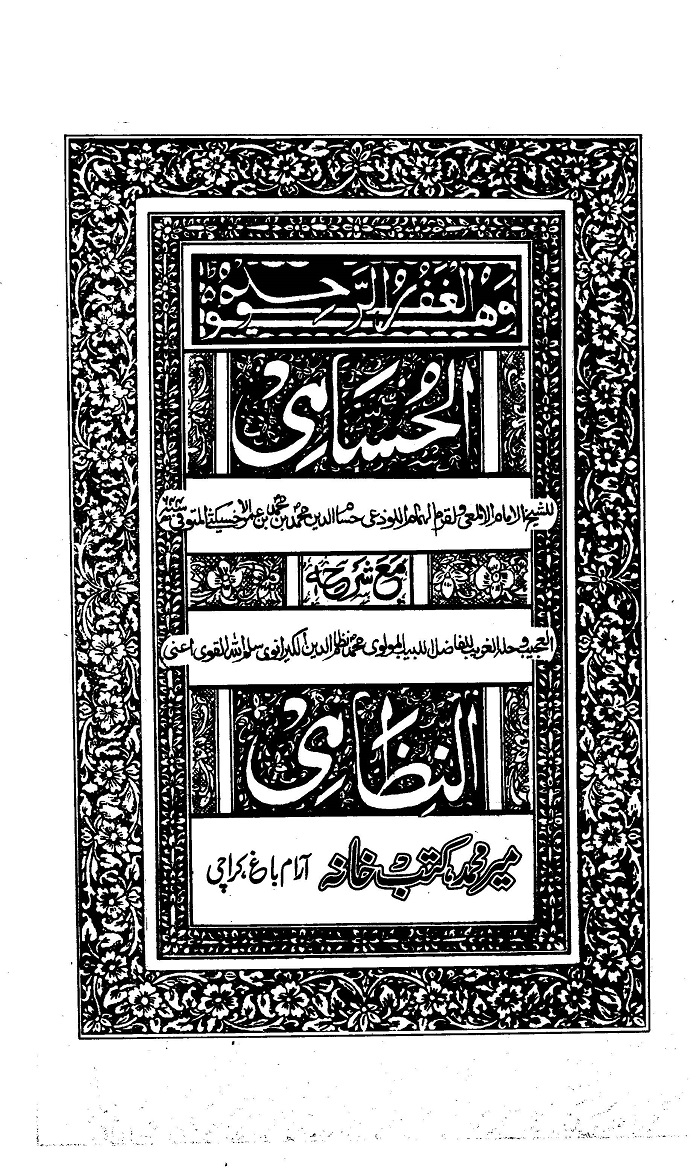 وَهُوَ الْغَفُورُ الرَّحِيمُ
الحُسَامِي
للشيخ الامام الالمعي والقرم الهمام اللوذعي حسام الدين محمد بن محمد بن عمر الاخسيكثي المتوفى ۶۴۴
مَعَ شَرْحِهِ
العجيب وحله الغريب للفاضل اللبيب المولوي محمد نظام الدين الكيرانوي سلمه الله القوي اعني
النِظَامِي
میر محمد، کتب خانہ آرام باغ، کراچی